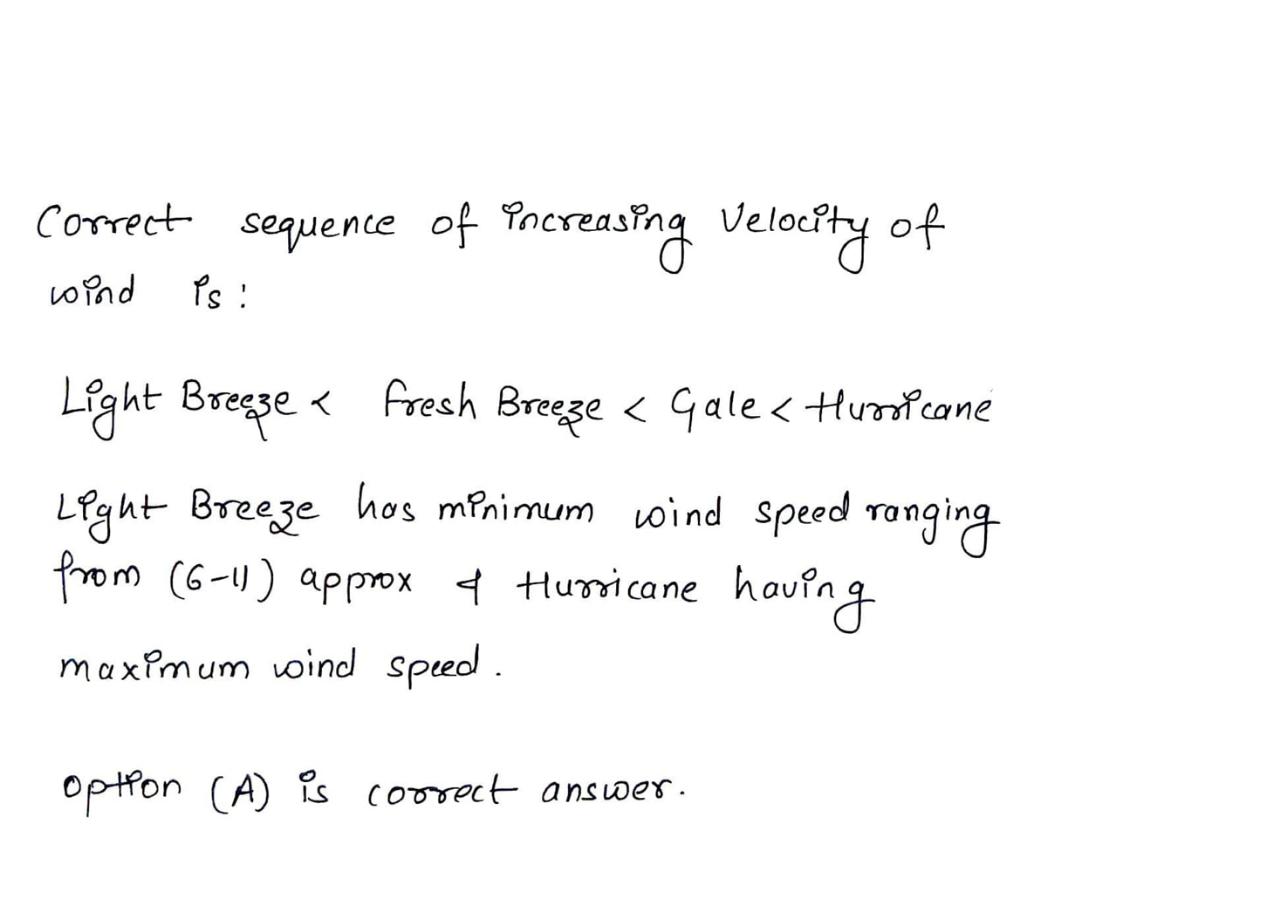 Correct sequence of increasing Velocity of
wind is :
Light Breeze < fresh Breeze < Gale < Hurricane
Light Breeze has minimum wind speed ranging
from (6-11) approx & Hurricane having
maximum wind speed.
option (A) is correct answer.